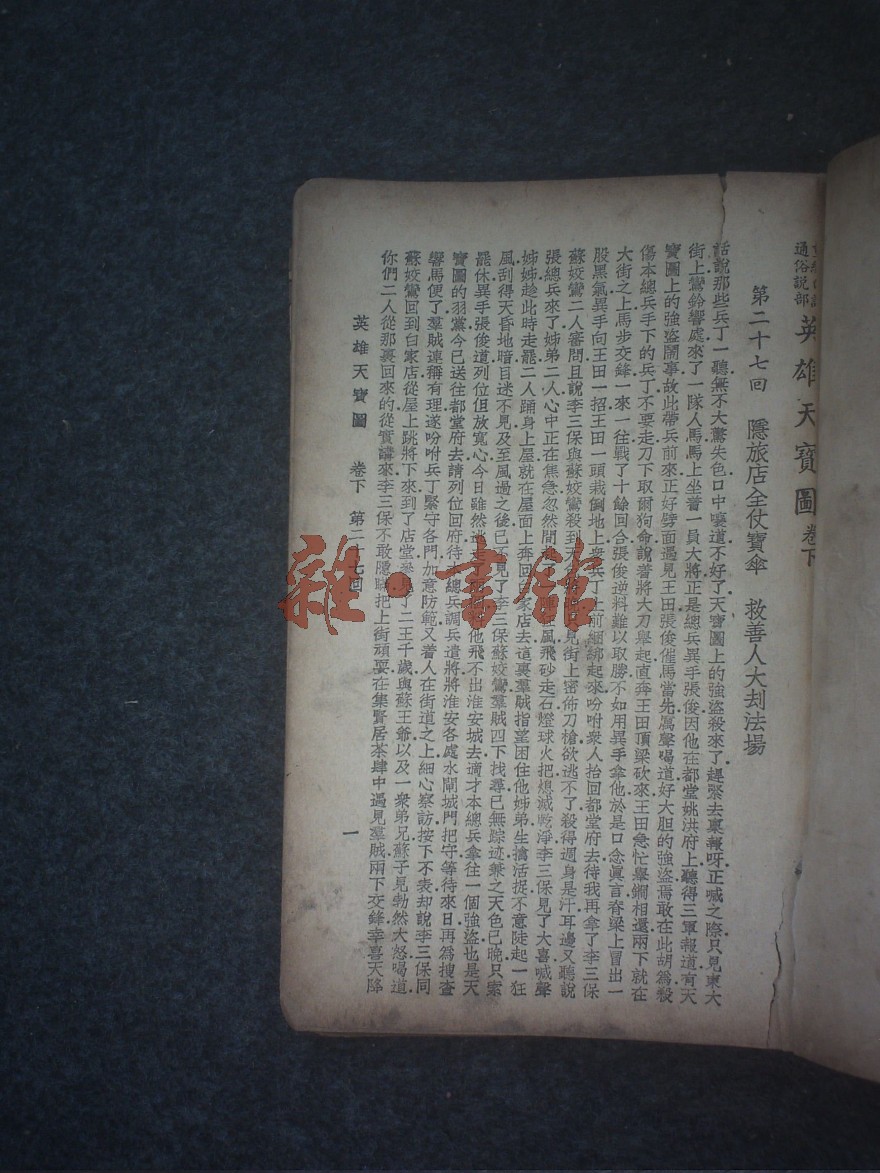 通俗說部
英雄天寶圖 卷下
第二十七回 隱旅店全仗寶傘 救善人大刦法塲
話說那些兵丁一聽無不大驚失色口中嚷道不好了天寶圖上的強盜殺來了趕緊去稟報呀正喊之際只見東大
街上鸞鈴響處來了一隊人馬馬上坐着一員大將正是總兵異手張俊因他在都堂姚洪府上聽得三軍報道有天
寶圖上的強盜鬧事故此帶兵前來正好劈面遇見王田張俊催馬當先厲聲喝道好大胆的強盜焉敢在此胡爲殺
傷本總兵手下的兵丁不要走刀下取爾狗命說着將大刀舉起直奔王田頂梁砍來王田急忙舉鐧相還兩下就在
大街之上馬步交鋒一來一往戰了十餘回合張俊逆料難以取勝不如用異手拿他於是口念眞言脊梁上冒出一
股黑氣異手向王田一招王田一頭栽倒地上衆兵丁上前綑綁起來吩咐衆人抬回都堂府去待我再拿了李三保
蘇姣鸞二人審問且說李三保與蘇姣鸞殺到天 見街上密佈刀槍欲逃不了殺得週身是汗耳邊又聽說
張總兵來了姊弟二人心中正在焦急忽然間 風飛砂走石燈球火把想滅乾淨李三保見了大喜喊聲
姊姊趁此時走罷二人踊身上屋就在屋面上奔回白家店去這裏羣賊指望困住他姊弟生擒活捉不意陡起一狂
風刮得天昏地暗目迷不見及至風過之後已不見了李三保蘇姣鸞羣賊四下找尋已無踪迹兼之天色已晚只索
罷休異手張俊道列位但放寬心今日雖然逃 他飛不出淮安城去適才本總兵拿住一個強盜也是天
寶圖的羽黨今已送往都堂府去請列位回府待 總兵調兵遣將將淮安各處水閘城門把守等待來日再爲搜查
響馬便了羣賊連稱有理遂吩咐兵丁緊守各門加意防範又着人在街道之上細心察訪按下不表却說李三保同
蘇姣鸞回到白家店從屋上跳將下來到了店堂參見了二王千歲與蘇王爺以及一衆弟兄蘇子見勃然大怒喝道
你們二人從那裏回來的從實講來李三保不敢隱瞞把上街頑耍在集賢居茶肆中遇見羣賊兩下交鋒幸喜天降
英雄天寶圖 卷下 第二十七回 一
雜·書舘